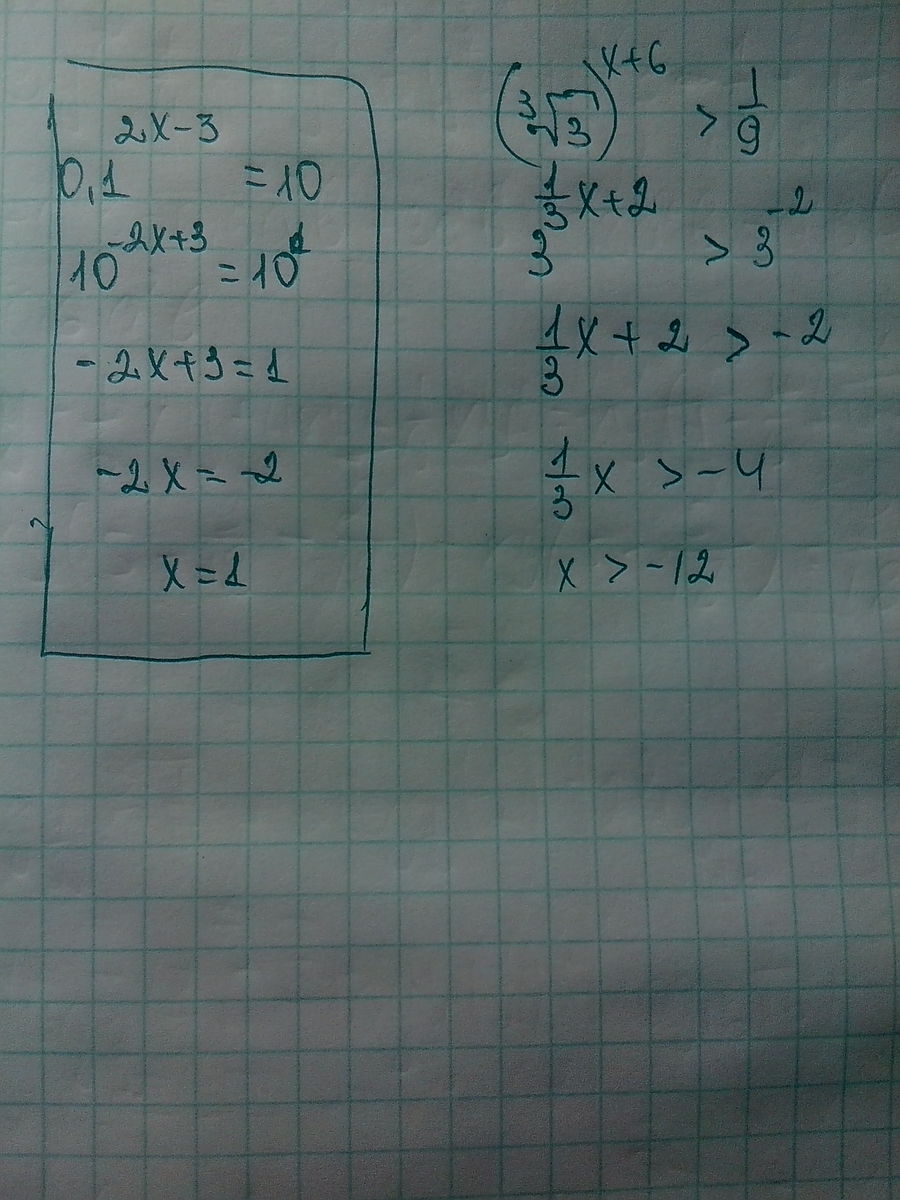 0,1^{2x-3} = 10
10^{-2x+3} = 10^1
-2x+3=1
-2x = -2
x=1
(∛3)^{x+6} > 1/9
3^{1/3 x+2} > 3^{-2}
1/3 x + 2 > -2
1/3 x > -4
x > -12